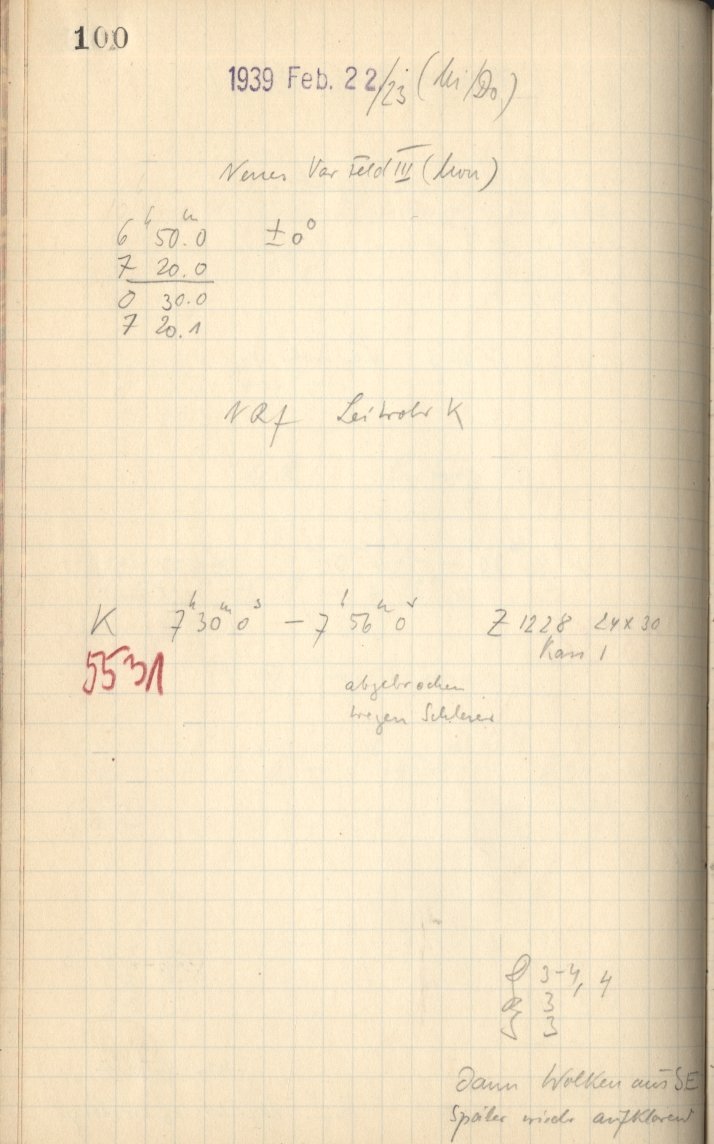 100
1939 Feb. 22/23 (Mi/Do)
Neues Var Feld III (Mon)
6h 50m.0 ±0°
7 20.0
0 30.0
7 20.1
Leitrohr K
K 7h30m0s – 7h56m0s Z 1228 24x30
5531 Kass 1
abgebrochen
wegen Schleier
3-4, 4
3
3
Dann Wolken aus SE
Später wieder aufklarend